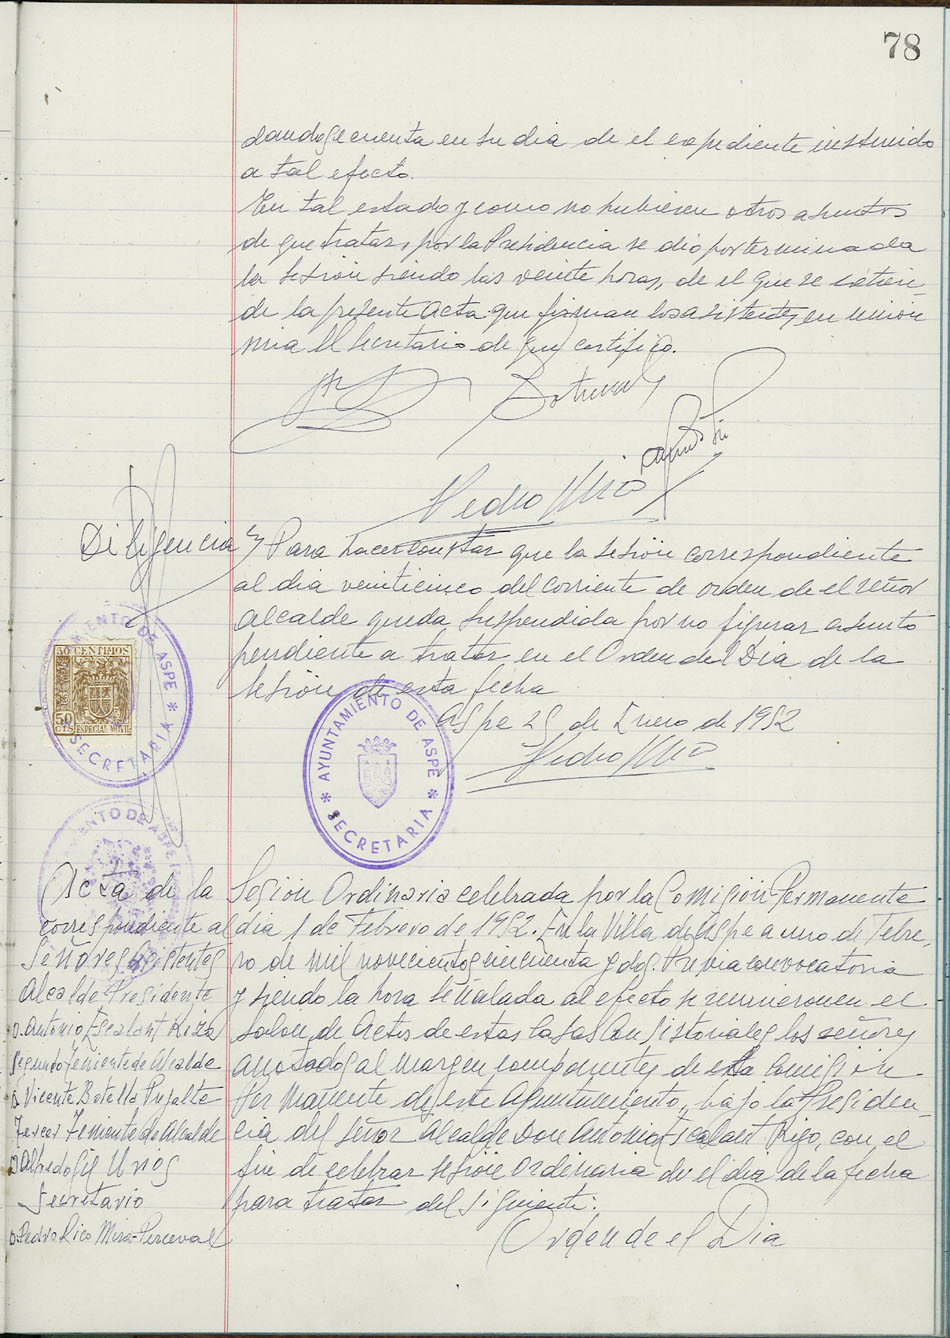 78
dandose cuenta en su dia de el expediente instruido
a tal efecto.
En tal estado y como no hubiesen otros asuntos
de que tratar, por la Presidencia se dio por terminada
la sesión siendo las veinte horas, de el que se extien-
de la presente Acta que firman los asistentes, en union
mia El Secretario de que certifico.
Botella
Pedro Miró
Diligencia Para hacer constar que la sesión correspondiente
al dia veinticinco del corriente de orden de el señor
Alcalde queda suspendida por no figurar asunto
pendiente a tratar en el Orden del Dia de la
sesión de esta fecha
Aspe 25 de Enero de 1952
AYUNTAMIENTO DE ASPE
SECRETARIA
50 CENTIMOS
50 CTS
ESPECIAL MOVIL
AYUNTAMIENTO DE ASPE
SECRETARIA
Acta de la Sesión Ordinaria celebrada por la Comisión Permanente
correspondiente al dia 1 de Febrero de 1952. En la Villa de Aspe a uno de Febre-
ro de mil novecientos cincuenta y dos. Previa convocatoria
y siendo la hora señalada al efecto se reunieron en el
Salon de Actos de estas Casas Consistoriales los señores
anotados al margen componentes de esta Comision
Permanente de este Ayuntamiento, bajo la Presiden-
cia del señor Alcalde Don Antonio Escalant Rizo, con el
fin de celebrar sesión Ordinaria de el dia de la fecha
para tratar del siguiente:
Orden de el Dia
Señores asistentes
Alcalde Presidente
D. Antonio Escalant Rizo
Segundo Teniente de Alcalde
D. Vicente Botella Pujalte
Tercer Teniente de Alcalde
D. Alfredo Gil Urios
Secretario
D. Pedro Rico Mira-Perceval